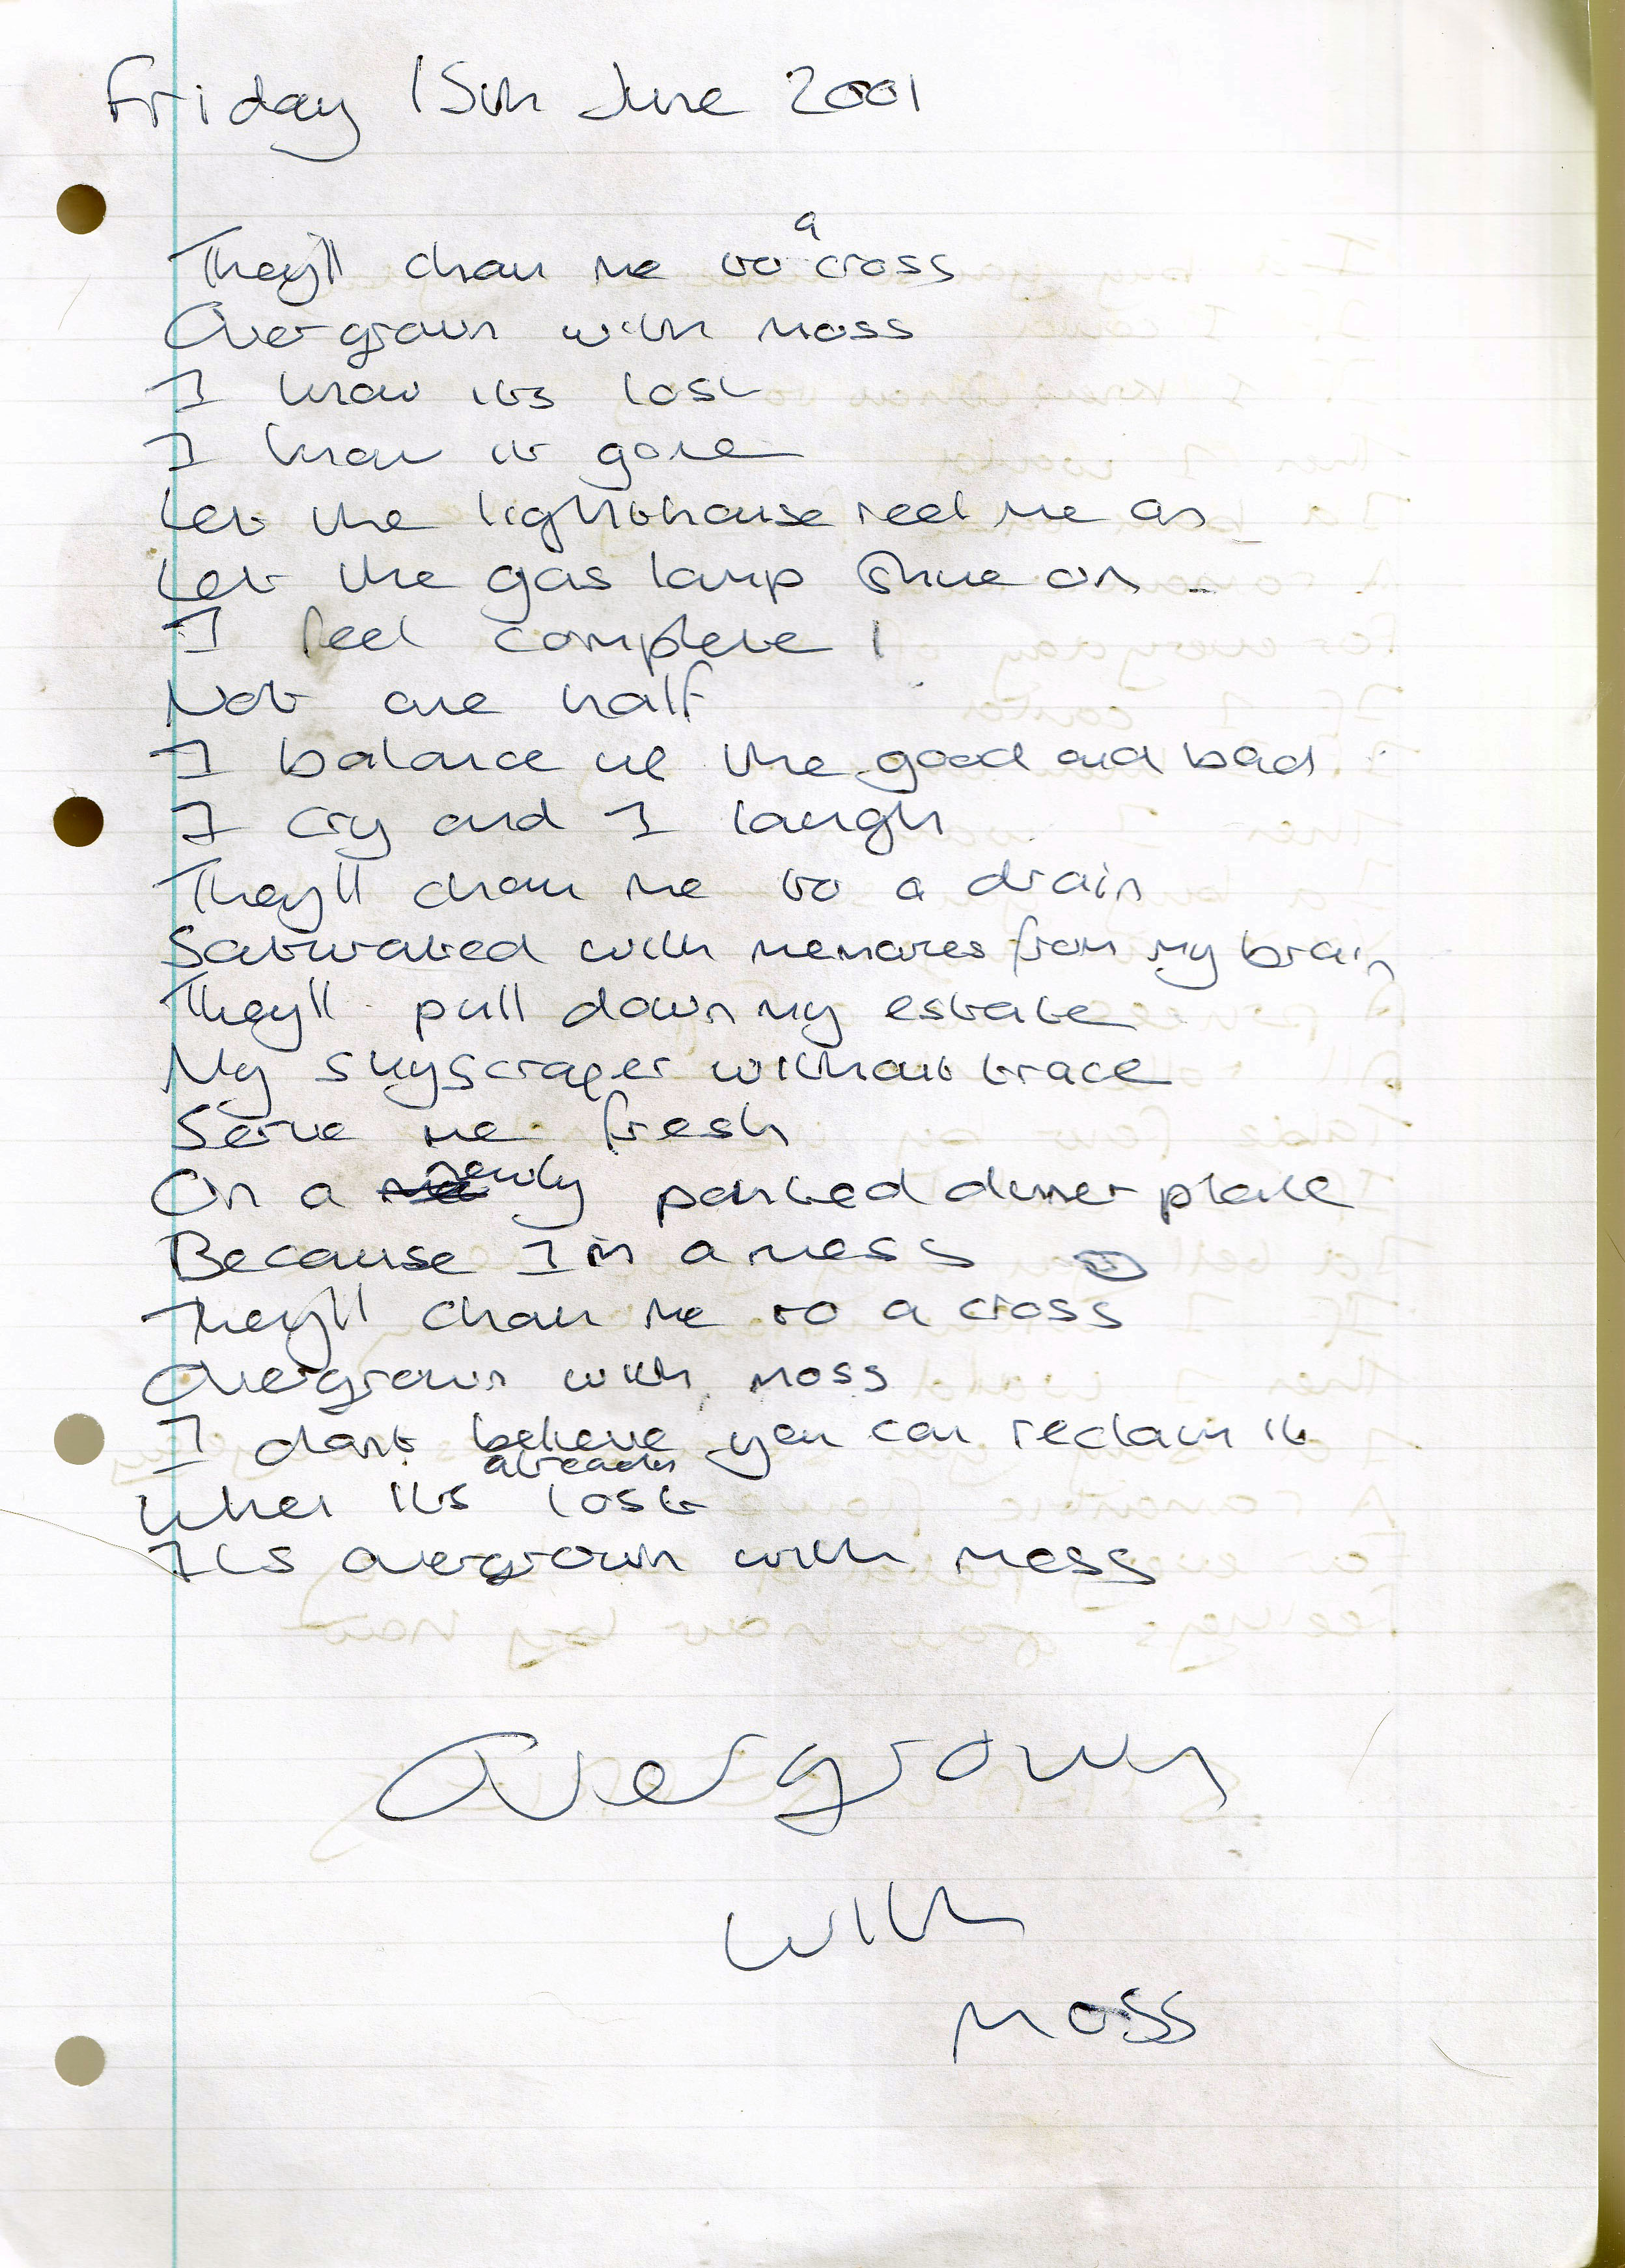 Friday 15th June 2001
They'll chain me to a cross
Overgrown with moss
I know its lost
I know it gone
Let the lighthouse reel me on
Let the gas lamp shine on
I feel complete
Not one half
I balance the good and bad
I cry and I laugh
They'll chain me to a drain
Saturated with memories from my brain
They'll pull down my estate
My skyscraper without trace
Serve me fresh
On a newly painted dinner plate
Because I'm a mess
They'll chain me to a cross
Overgrown with moss
I don't believe you can reclaim it
When its already lost
Its overgrown with moss
Overgrown
With
Moss